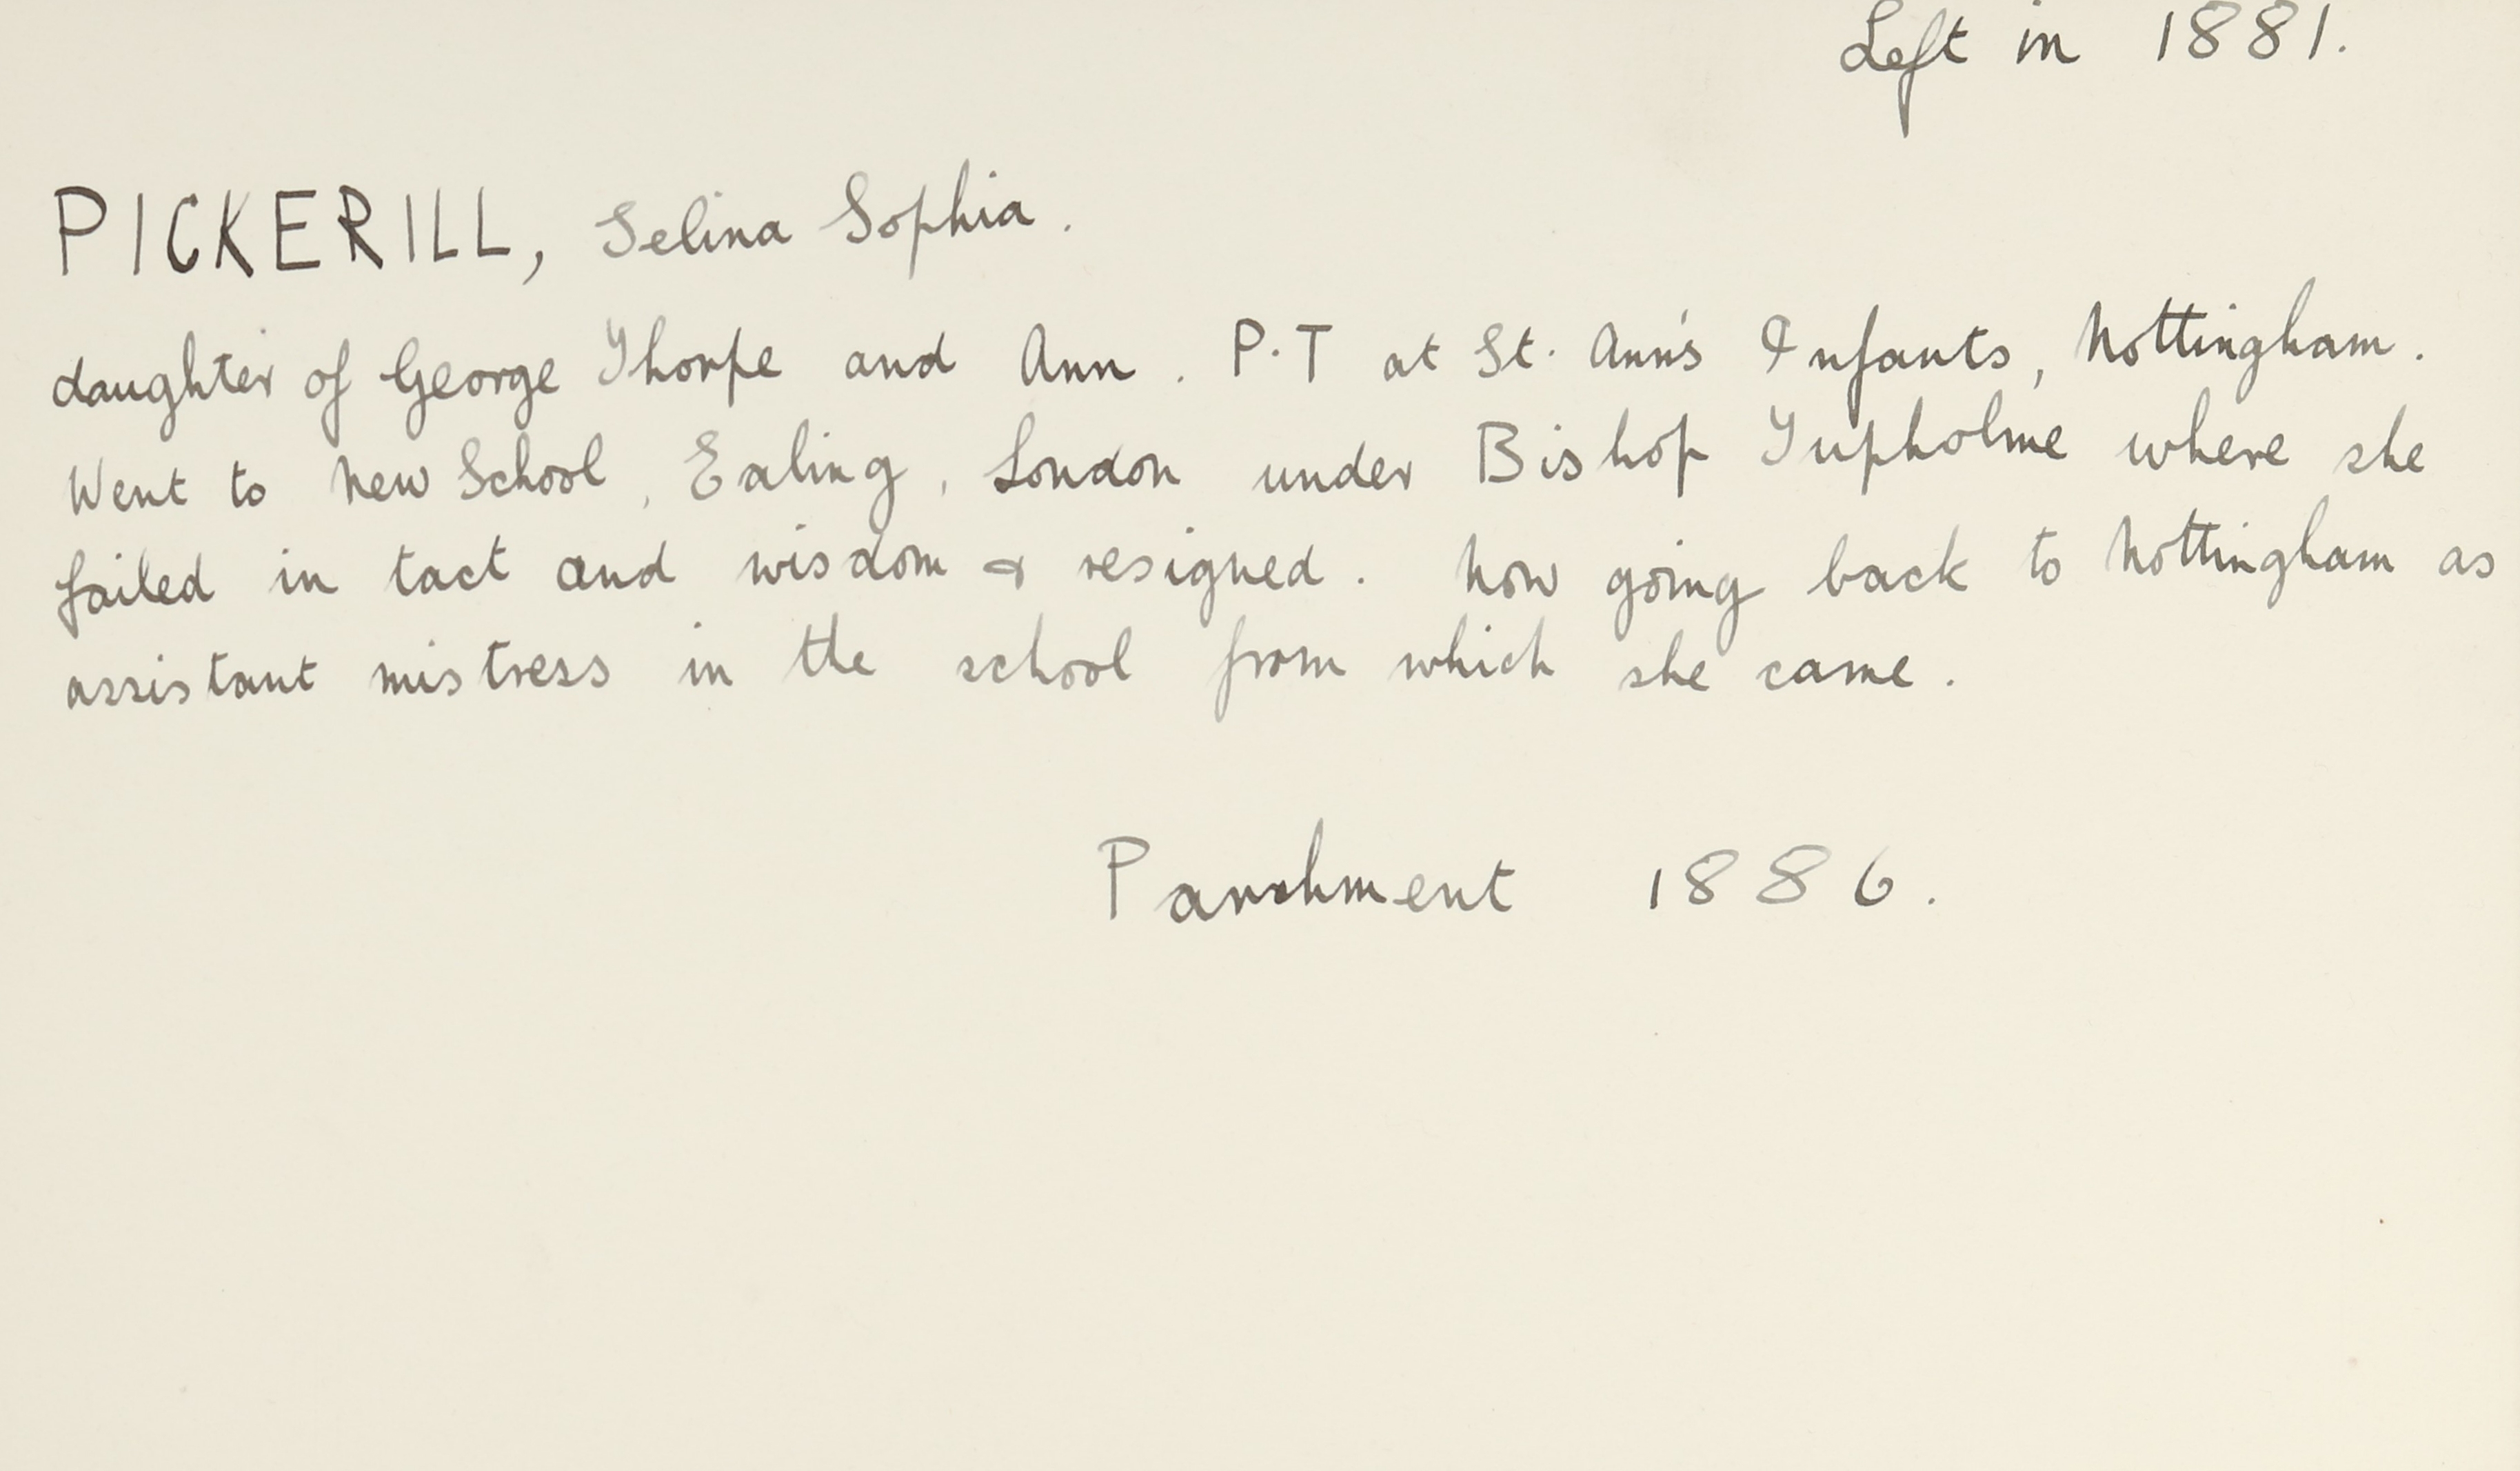 Left in 1881.
PICKERILL, Selina Sophia.
daughter of George Thorpe and Ann. P.T at St. Ann's Infants, Nottingham.
Went to New School, Ealing, London under Bishop Tupholme where she
failed in tact and wisdom & resigned. Now going back to Nottingham as
assistant mistress in the school from which she came.
Parchment 1886.